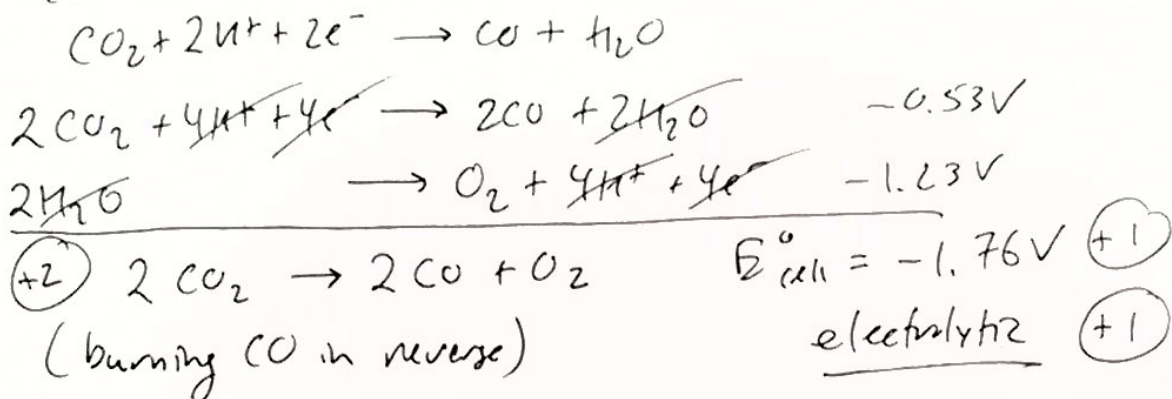 CO₂ + 2H⁺ + 2e⁻ → CO + H₂O
2CO₂ + 4H⁺ + 4e⁻ → 2CO + 2H₂O -0.53V
2H₂O → O₂ + 4H⁺ + 4e⁻ -1.23V
+2 2CO₂ → 2CO + O₂ E°cell = -1.76V +1
(burning CO in reverse) electrolytic +1